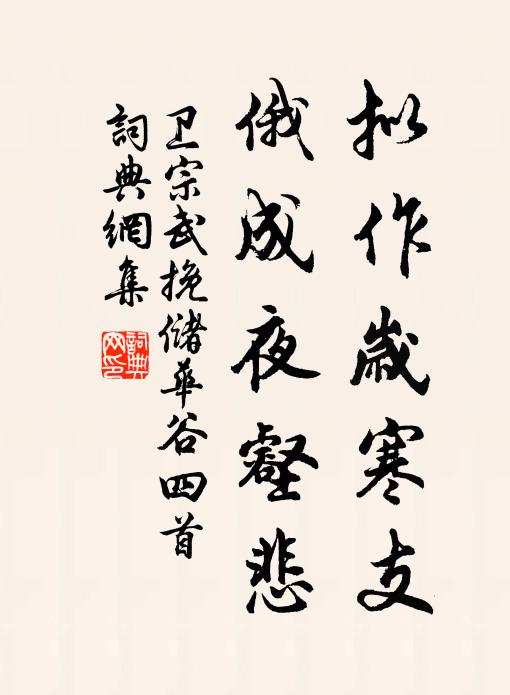 拟作歲寒支
俄成夜壑悲
卫宗武挽儲華谷四首
詞典網集
詞典網印